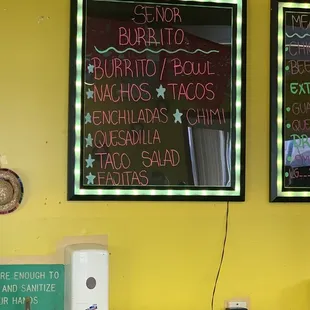 SEÑOR
BURRITO
BURRITO / BOWL
NACHOS TACOS
ENCHILADAS CHIMI
QUESADILLA
TACO SALAD
FAJITAS
ME
CHI
BEE
EXT
GU
QUE
RE ENOUGH TO
AND SANITIZE
UR HANDS